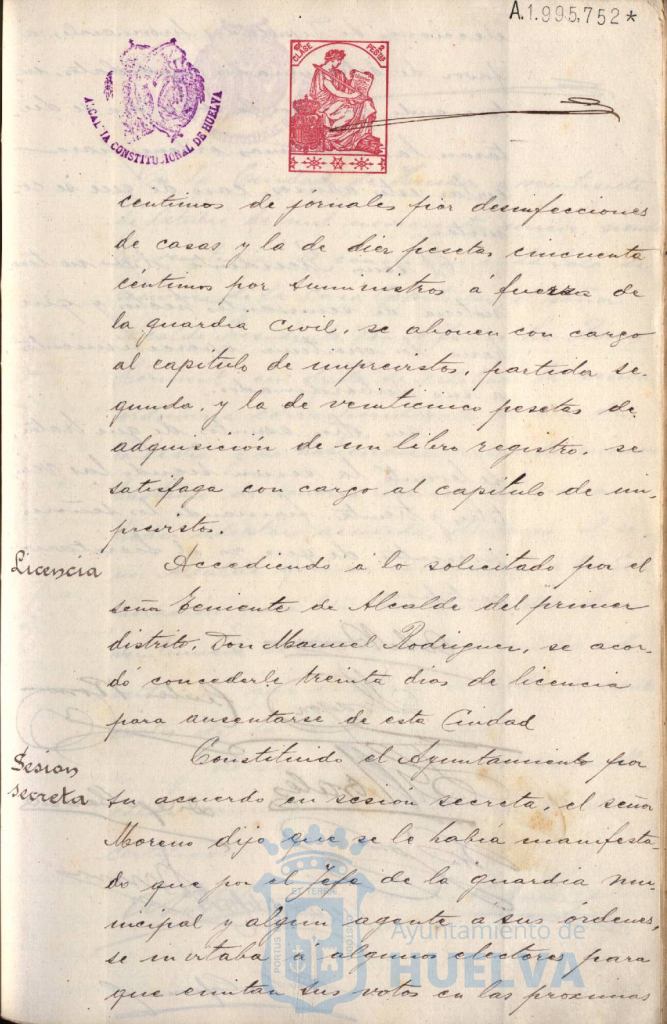 A.1.995,752*
CLASE
PESETAS
ALCALDIA CONSTITUCIONAL DE HUELVA
centimos de jornales por desinfecciones
de casas y la de diez pesetas cincuenta
céntimos por suministros á fuerzas de
la guardia Civil, se abonen con cargo
al capitulo de imprevistos, partida se-
gunda, y la de veinticinco pesetas de
adquisición de un libro registro, se
satisfaga con cargo al capitulo de im-
previstos.
Licencia
Accediendo á lo solicitado por el
señor Teniente de Alcalde del primer
distrito, Don Manuel Rodriguez, se acor-
dó concederle treinta dias de licencia
para ausentarse de esta Ciudad
Sesion
secreta
Constituido el Ayuntamiento por
su acuerdo en sesión secreta, el señor
Moreno dijo que se le habia manifesta-
do que por el Jefe de la guardia mu-
nicipal y algun agente á sus órdenes,
se invitaba á algunos electores para
que emitan sus votos en las proximas
Ayuntamiento de
HUELVA